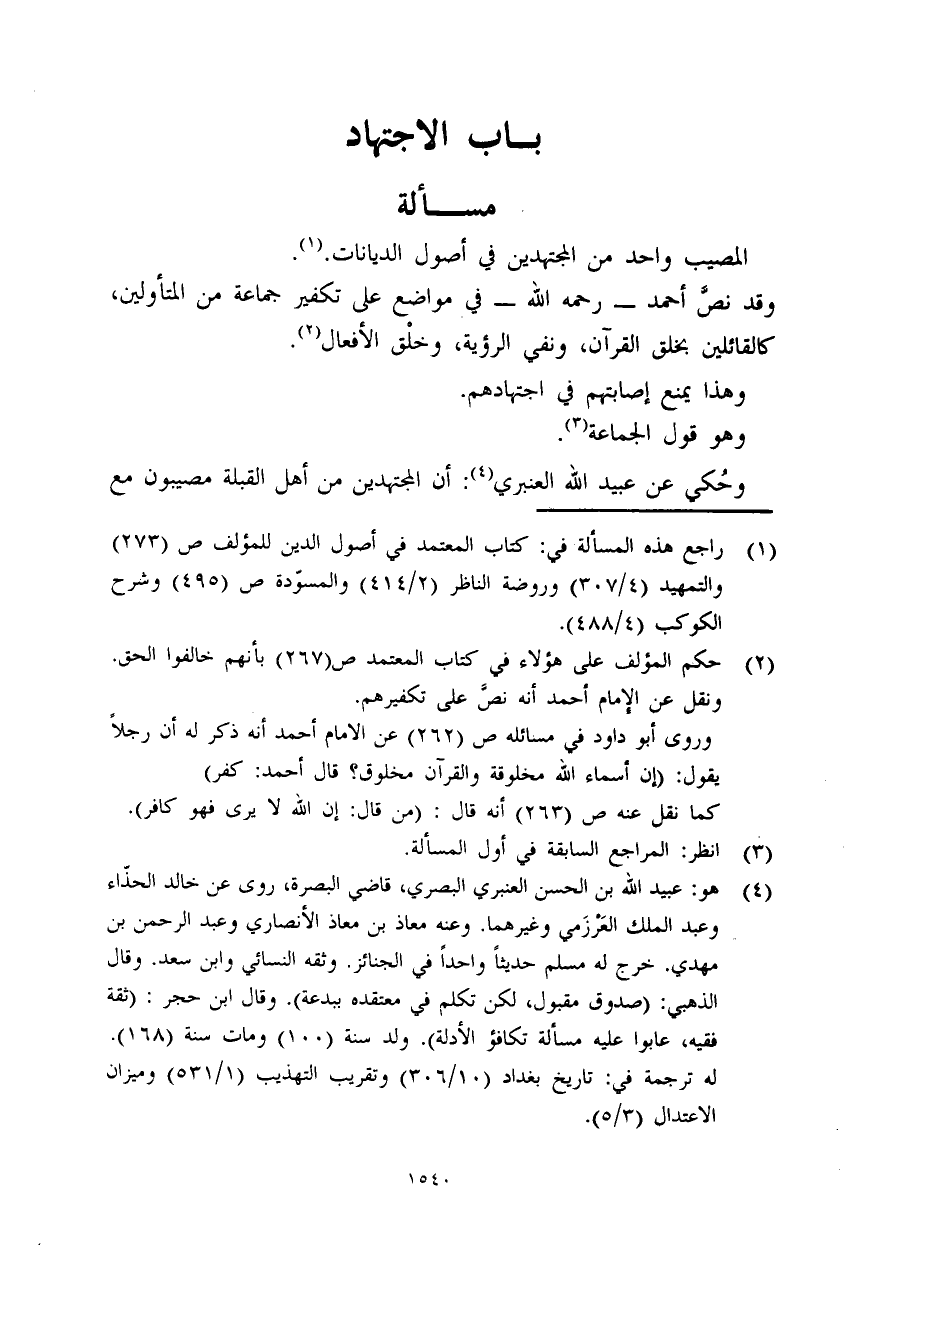 بـــاب الاجتهاد
مســـــألة
المصيب واحد من المجتهدين في أصول الديانات.(١).
وقد نصَّ أحمد ــ رحمه الله ــ في مواضع على تكفير جماعة من المتأولين،
كالقائلين بخلق القرآن، ونفي الرؤية، وخلْق الأفعال(٢).
وهذا يمنع إصابتهم في اجتهادهم.
وهو قول الجماعة(٣).
وحُكي عن عبيد الله العنبري(٤): أن المجتهدين من أهل القبلة مصيبون مع
(١) راجع هذه المسألة في: كتاب المعتمد في أصول الدين للمؤلف ص (٢٧٣)
والتمهيد (٣٠٧/٤) وروضة الناظر (٤١٤/٢) والمسوّدة ص (٤٩٥) وشرح
الكوكب (٤٨٨/٤).
(٢) حكم المؤلف على هؤلاء في كتاب المعتمد ص(٢٦٧) بأنهم خالفوا الحق.
ونقل عن الإمام أحمد أنه نصَّ على تكفيرهم.
وروى أبو داود في مسائله ص (٢٦٢) عن الامام أحمد أنه ذكر له أن رجلاً
يقول: (إن أسماء الله مخلوقة والقرآن مخلوق؟ قال أحمد: كفر)
كما نقل عنه ص (٢٦٣) أنه قال : (من قال: إن الله لا يرى فهو كافر).
(٣) انظر: المراجع السابقة في أول المسألة.
(٤) هو: عبيد الله بن الحسن العنبري البصري، قاضي البصرة، روى عن خالد الحذّاء
وعبد الملك العَرْزَمي وغيرهما. وعنه معاذ بن معاذ الأنصاري وعبد الرحمن بن
مهدي. خرج له مسلم حديثاً واحداً في الجنائز. وثقه النسائي وابن سعد. وقال
الذهبي: (صدوق مقبول، لكن تكلم في معتقده ببدعة). وقال ابن حجر : (ثقة
فقيه، عابوا عليه مسألة تكافؤ الأدلة). ولد سنة (١٠٠) ومات سنة (١٦٨).
له ترجمة في: تاريخ بغداد (٣٠٦/١٠) وتقريب التهذيب (٥٣١/١) وميزان
الاعتدال (٥/٣).
١٥٤٠